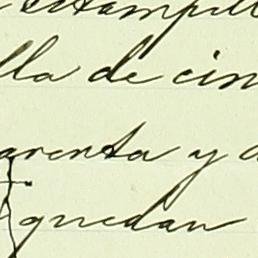 estampill
lla de cin
arenta y o
quedan